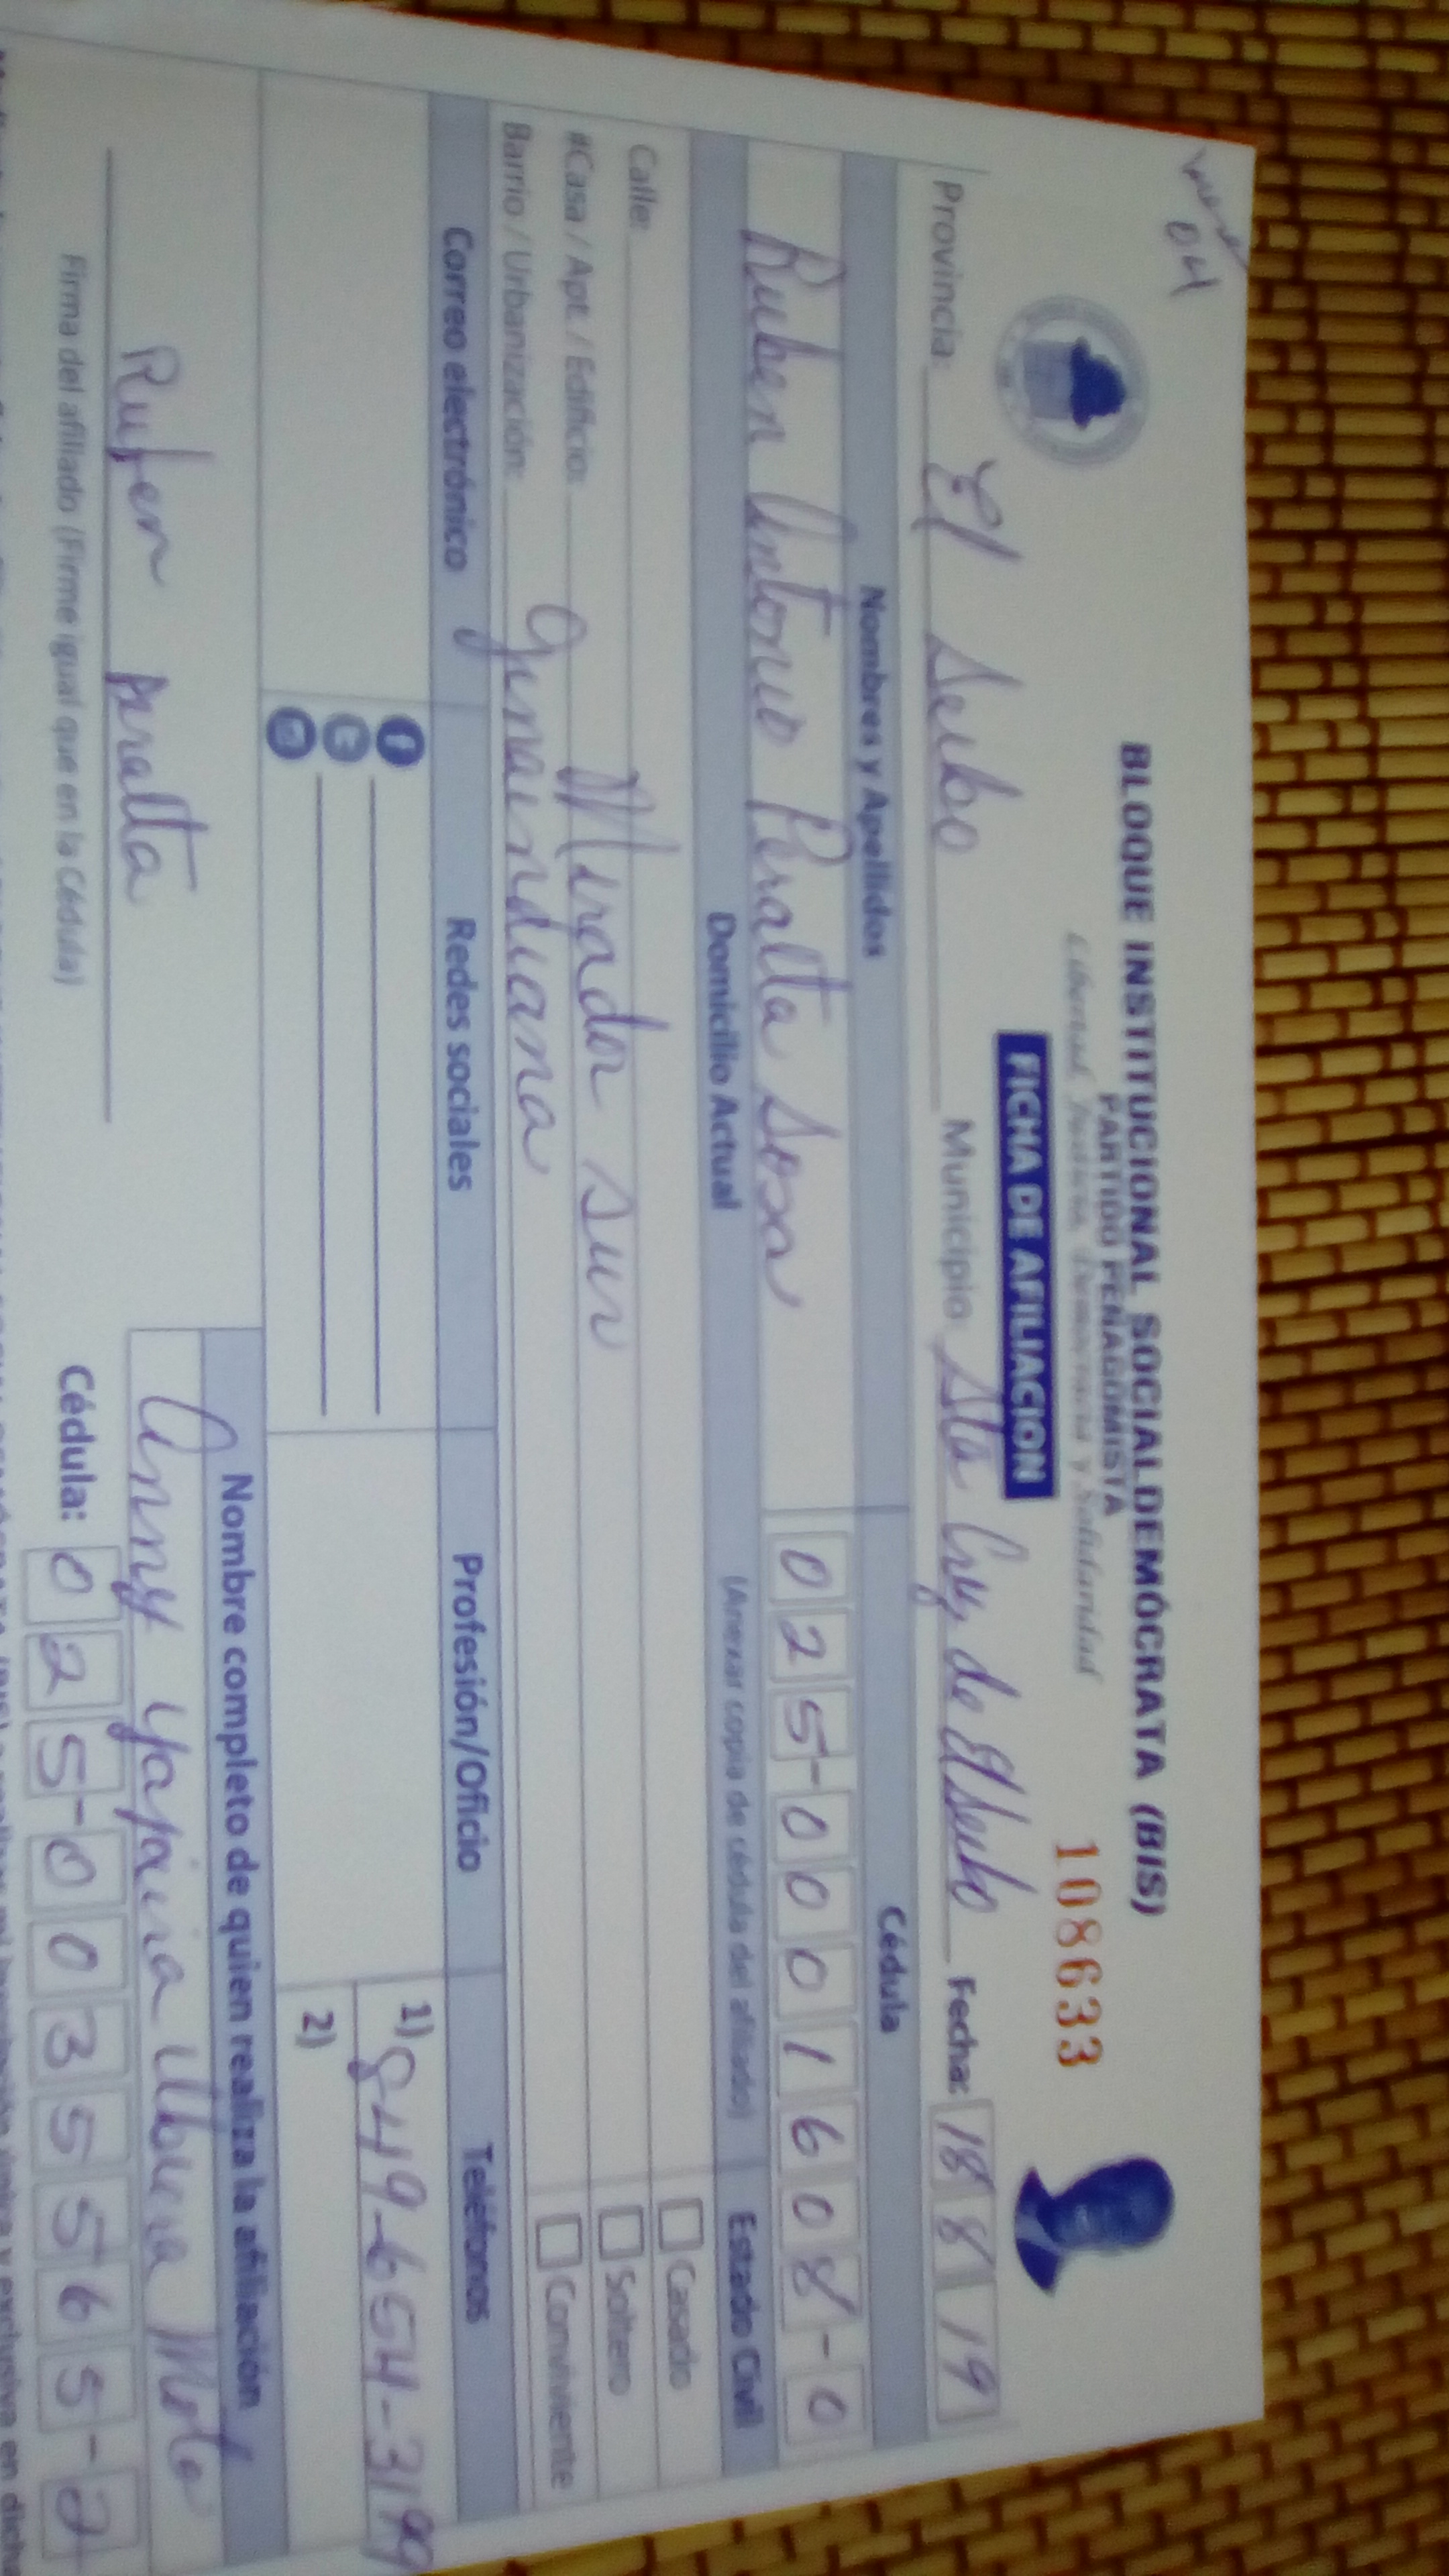 04
BLOQUE INSTITUCIONAL SOCIALDEMÓCRATA (BIS)
PARTIDO PEÑAGOMISTA
Libertad, Justicia, Democracia y Solidaridad
108633
FICHA DE AFILIACION
Provincia: El Seibo Municipio Sta Cruz de El Seibo Fecha: 18 8 19
Nombres y Apellidos Cédula
Ruben Antonio Peralta Sosa 025-0001608-0
Domicilio Actual (Anexar copia de cédula del afiliado) Estado Civil
Calle: Casado
#Casa / Apt. / Edificio: Mirador Sur Soltero
Barrio / Urbanización: Ginandiana Conviviente
Correo electrónico Redes sociales Profesión/Oficio Teléfonos
1) 849-654-3199
2)
Nombre completo de quien realiza la afiliación
Ruben Peralta Anny Yajaira Mota
Firma del afiliado (Firme igual que en la Cédula) Cédula: 025-0035565-2